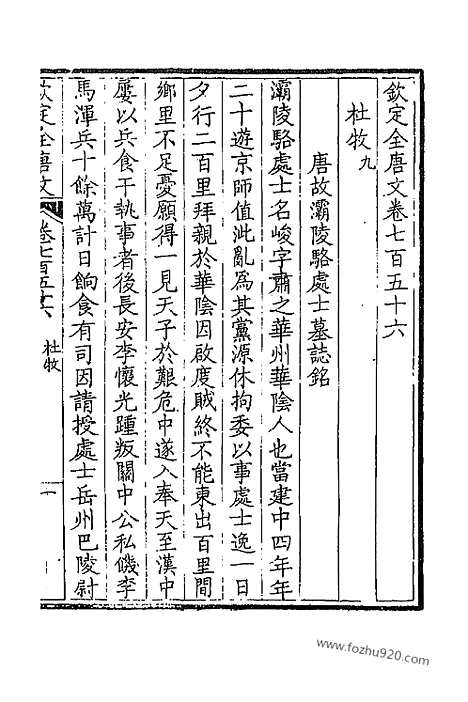 欽定全唐文卷七百五十六
杜牧九
唐故灞陵駱處士墓誌銘
灞陵駱處士名峻字肅之華州華陰人也當建中四年年
二十遊京師值泚亂爲其黨源休拘委以事處士逸一日
夕行二百里拜親於華陰因啟度賊終不能東出百里間
鄉里不足憂願得一見天子於艱危中遂入奉天至漢中
屢以兵食干執事者後長安李懷光踵叛關中公私饑李
馬渾兵十餘萬計日餉食有司因請授處士岳州巴陵尉
欽定全唐文
卷七百五十六
杜牧
一
www.fozhu920.com